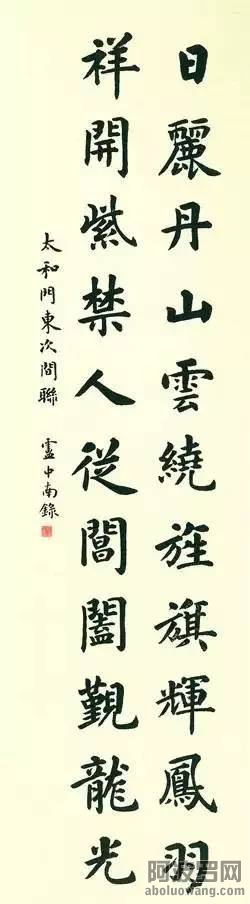 日麗丹山雲繞旌旗輝鳳羽
祥開紫禁人從閶闔覲龍光
太和門東次間聯 盧中南錄
阿波罗网
aboluowang.com